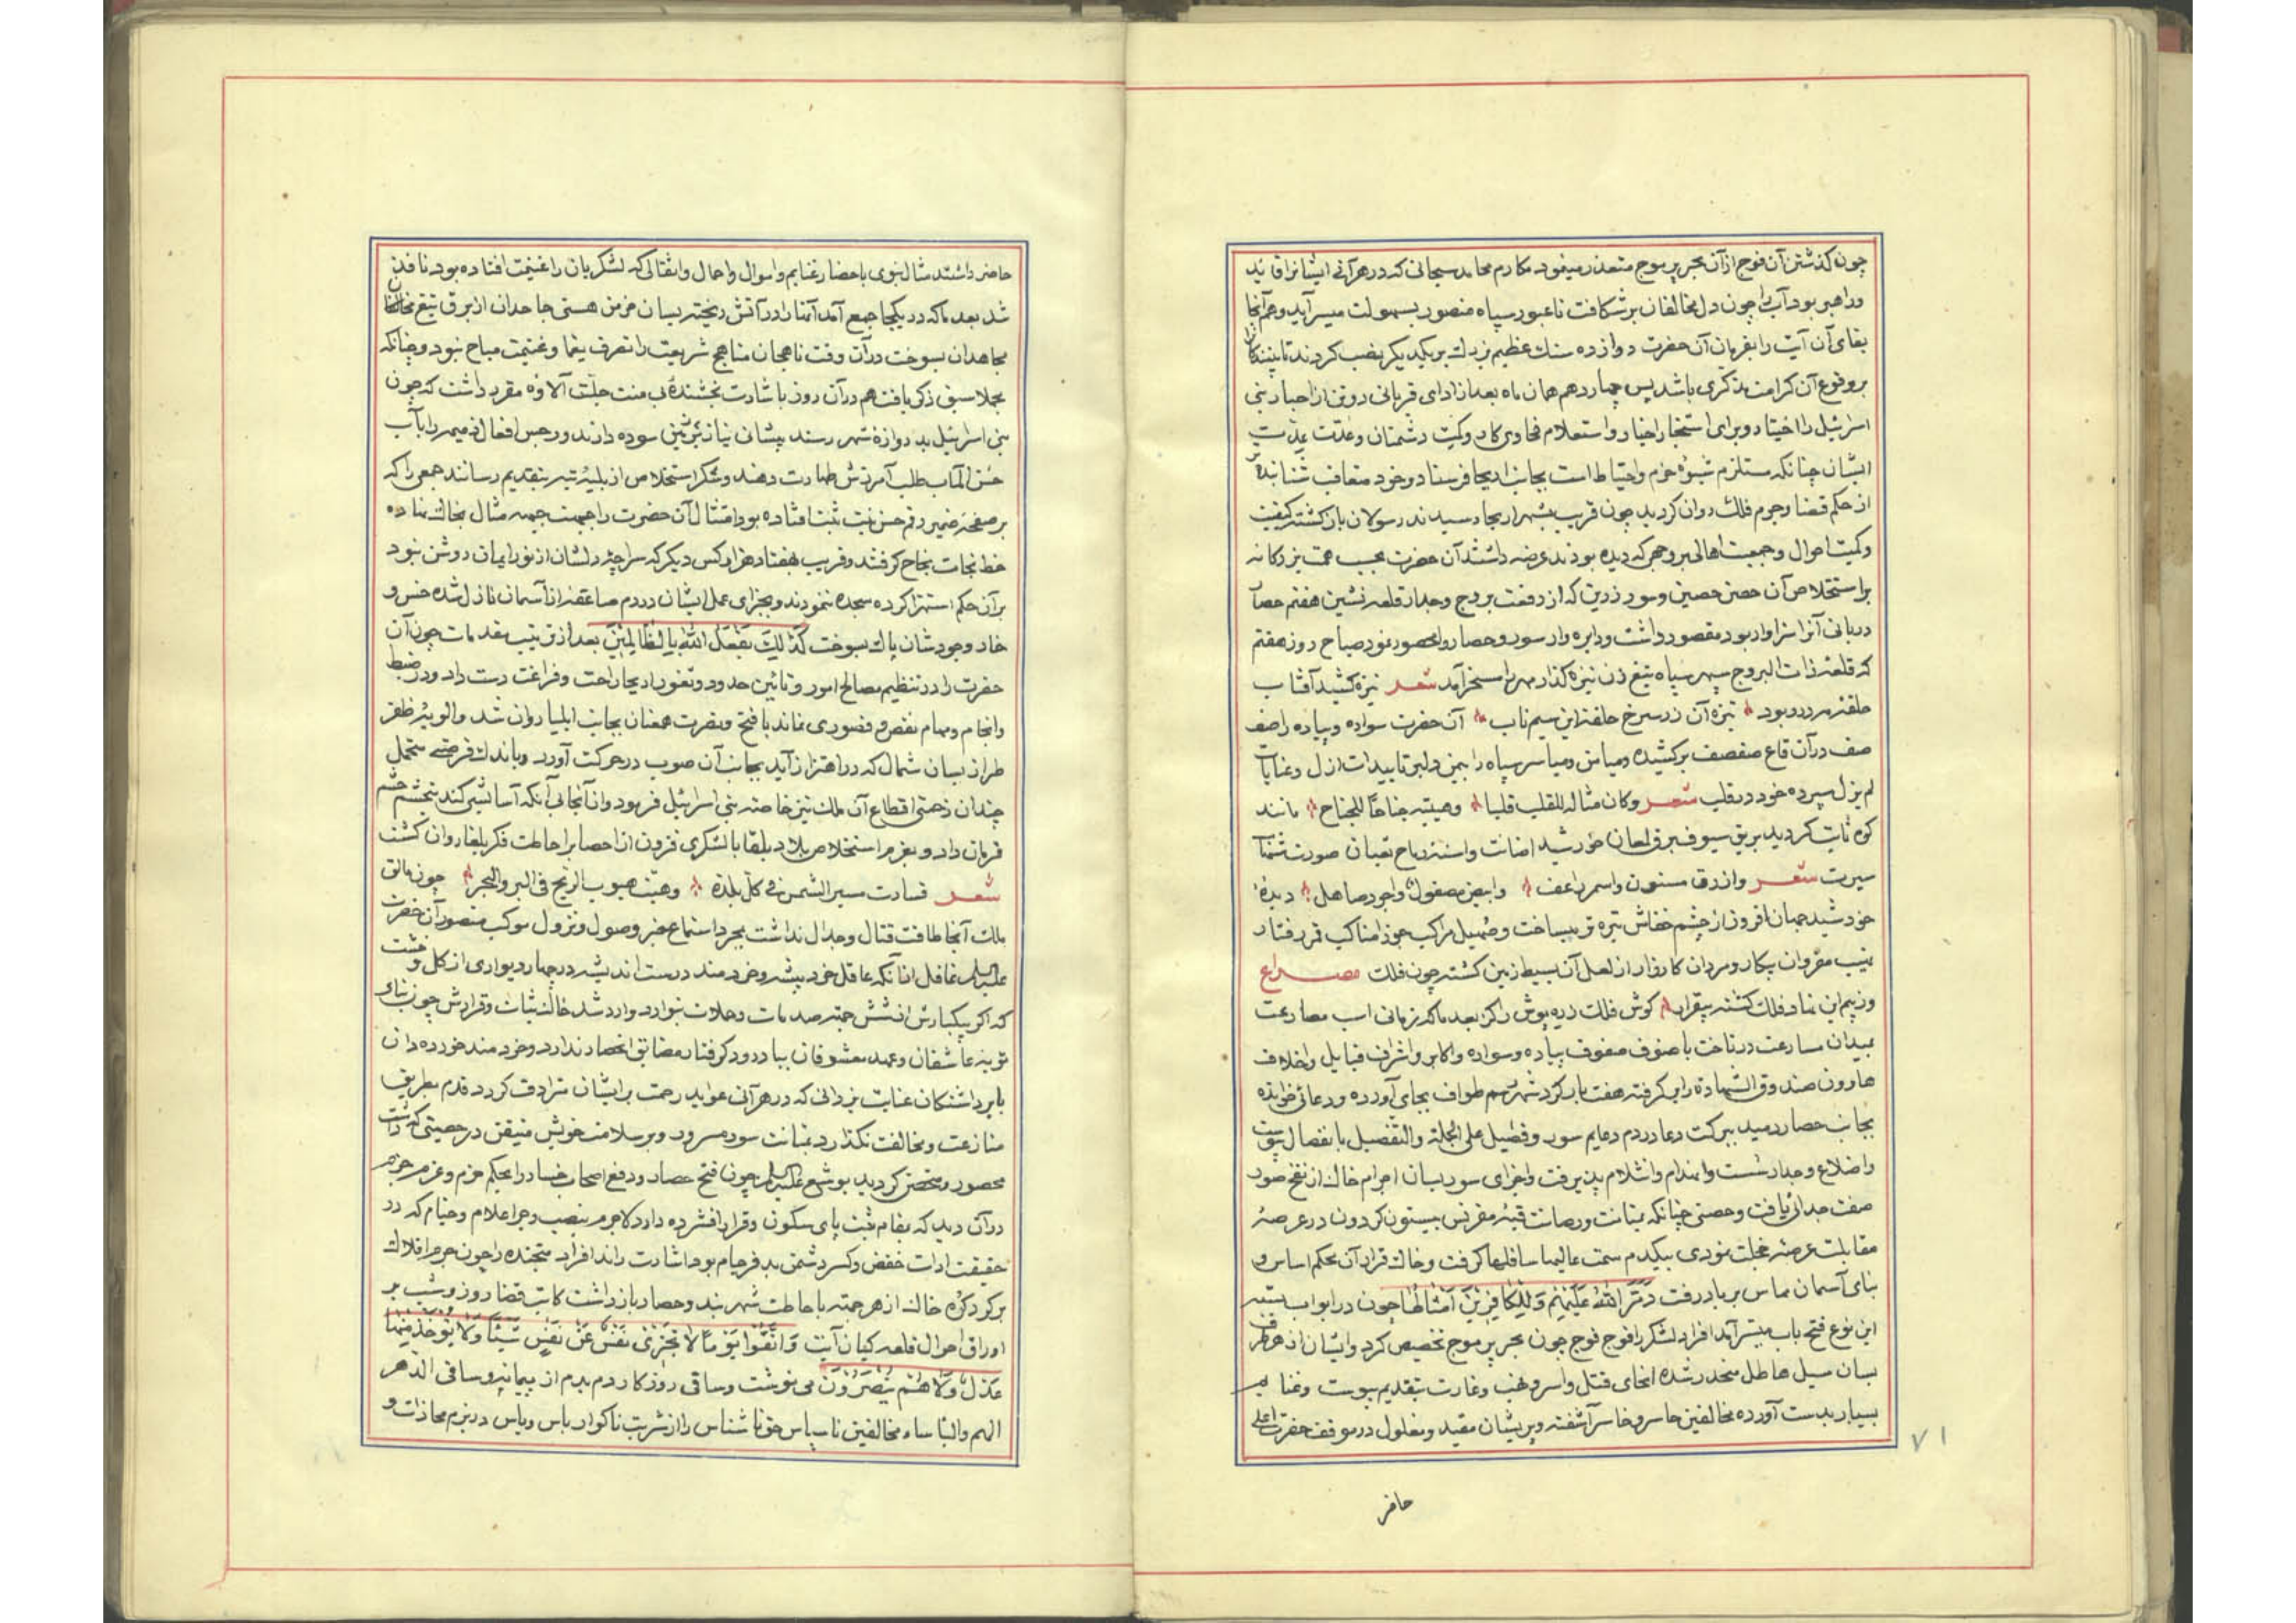 چون کذشتن آن فوج از آن بحر پر موج متعذر مینمود مکارم محامد سبحانی که در هر آنی ایشانرا قاید
و راهبر بود آب را چون دل مخالفان بر شکافت تا عبور سپاه منصور بسهولت میسر آید و هم آنجا
بقای آن آیت را بفرمان آن حضرت دوازده سنک عظیم نزدیک بر یکدیکر نصب کردند تا بینندکان
بر وقوع آن کرامت مذکری باشد پس چهاردهم همان ماه بعد از ادای قربانی دو تن از احبار بنی
اسرائیل را اختیار و برای استخبار اخبار و استعلام فحاوی کار و کمیت دشمنان و عدت
ایشان چنانکه مستلزم شیوۀ حزم و احتیاط است بجانب اریحا فرستاد و خود متعاقب شتابنده
از حکم قضا و جرم فلک روان کردید چون قریب بشهر اریحا رسیدند رسولان باز کشته کیفیت
و کمیت احوال و جمعیت اهالی بر وجهی که دیده بودند عرضه داشتند آن حضرت بحسب همت
بر استخلاص آن حصن حصین و سور زرین که از رفعت بروج و جدار قلعه نشین هفتم حصار
دربانی آنرا سزاوار بود مقصور داشت و دایره وار سور و حصار را محصور نمود صباح روز هفتم
که قلعۀ ذات البروج سپهر سپاه تیغ زن نیزه کذار مهر را مسخر آمد شعر نیزه کشید آفتاب
حلقۀ مه در ربود نیزه آن زر سرخ حلقۀ این سیم ناب آن حضرت سواده و پیاده را صف
صف در آن قاع صفصف بر کشیده و میامن و میاسر سپاه را بیمن دلبر تاییدات ازل و عنایات
لم یزل سپرده خود در قلب شعر و کان مثاله للقلب قلبا و هیبته جناحا للجناح مانند
کوه ثابت کردید بریق سیوف برق لمعان خورشید اضائت و اسنۀ رماح ثعبان صورت
سیرت شعر و ازرق مسنون و اسمر راعف و ابیض مصقول و اجرد صاهل دیدۀ
خورشید جهان افروز از چشم خفاش تیره تر میساخت و صهیل مراکب جوزا مناکب قمر رفتار
نهیب مقروان پیکار و مردان کارزار از لعل آن بسیط زمین کشته چون فلک مصراع
وز بیم این نماد فلک کشته بیقرار کوش فلک بعد ما که زمانی اسب مصارعت
بمیدان مسارعت در تاخت با صنوف صفوف پیاده و سواره و اکابر و اشراف قبایل و اخلاف
هارون صندوق الشهادة را بر کرفته هفت بار کرد شهر رسم طواف بجای آورده و دعائی خوانده
بجانب حصار دمید ببرکت دعا در دم دعایم سور و فصیل علی الجملة و التفصیل بانفصال پیوست
و اضلاع و جدار شست و انهدام و انثلام پذیرفت و اجزای سور بسان اجرام خاک از نفخ صور
صفت جدائی یافت و حصنی چنانکه بمتانت و رصانت قبۀ مقرنس بیستون کردون در عرصۀ
مقابلت عرضۀ خجلت بودی بیکدم سمت عالیها سافلها کرفت و خاک قرار آن محکم اساس و
بنای آسمان مماس بر باد رفت دَمَّرَ اللّٰهُ عَلَیْهِمْ وَلِلْکافِرِینَ اَمْثالُها چون در ابواب بسته
این نوع فتح باب میسر آمد افراد لشکر را فوج فوج چون بحر پر موج تخصیص کرد و ایشان از هر طرف
بسان سیل هاطل منحدر شده انحای قتل و اسر و نهب و غارت بتقدیم پیوست و غنایم
بسیار بدست آورده مخالفین حاسر و خاسر آشفته و پریشان مقید و مغلول در موقف حضرت اعلی
۷۱
حاضر
حاضر داشتند مثال نبوی باحضار غنایم و اموال و احمال و اثقالی که لشکریان را غنیمت افتاده بود نافذ
شد بعد ما که در یکجا جمع آمد آنها را در آتش ریخته بسان خرمن هستی جاحدان از برق تیغ
مجاهدان بسوخت در آن وقت ناهجان مناهج شریعت را تصرف یغما و غنیمت مباح نبود و چنانکه
مجملا سبق ذکر یافت هم در آن روز باشارت بخشندۀ بی منت جلّت آلاؤه مقرر داشت که چون
بنی اسرائیل بدروازۀ شهر رسند پیشانی نیاز بر زمین سوده دارند و رجس افعال ذمیمه را بآب
حسن المآب طلب آمرزش طهارت دهند و شکر استخلاص از بلیۀ تیه بتقدیم رسانند جمعی را که
بر صفحۀ ضمیر رقم حسن نیت ثبت افتاده بود امتثال آن حضرت را جبهت جبهه مثال بخاک نهاده
خط نجات بنجاح کرفتند و قریب هفتاد هزار کس دیکر که سراچۀ دلشان از نور ایمان روشن نبود
بر آن حکم استهزا کرده سجده ننمودند و بجزای عمل ایشان در دم صاعقه از آسمان نازل شده خس و
خار وجودشان پاک بسوخت کَذٰلِکَ یَفْعَلُ اللّٰهُ بِالظّالِمِینَ بعد از ترتیب مقدمات چون آن
حضرت را در تنظیم مصالح امور و تامین حدود و ثغور اریحا راحت و فراغت دست داد و در ضبط
و انجام مهام نقص و قصوری نماند با فتح و نصرت همعنان بجانب ایلیا روان شد و الویۀ ظفر
طراز بسان شمال که در اهتزاز آید بجانب آن صوب در حرکت آورد و باندک فرصتی متحمل
چندان زحمتی اقطاع آن ملک نیز خاصۀ بنی اسرائیل فرمود و از آنجا بی آنکه آسائشی کند
فرمان داد و بعزم استخلاص بلاد بلقا با لشکری فزون از احصا بر احاطت فکر بلغار روان کشت
شعر فسارت مسیر الشمس فی کل بلدة و هبت هبوب الریح فی البر و البحر چون بالق
ملک آنجا طاقت قتال و جدال نداشت بمجرد استماع خبر وصول و نزول موکب منصور آن حضرت
علیه السلم غافل از آنکه عاقل خرد پیشه و خردمند درست اندیشه در چهار دیواری از کل و خشت
که اکر بیکبارش از شش جهة صدمات و حملات بتوارد وارد شد خاک ثبات و قرارش چون بنای
توبۀ عاشقان و عهد معشوقان بباد رود کرفتار مضایق انحصار ندارد و خردمند خورده دان
با برداشتکان عنایت یزدانی که در هر آنی عواید رحمت بر ایشان مترادف کردد قدم بطریق
منازعت و مخالفت نکذارد بمتانت سور مسرور و بر سلامت خویش متیقن در حصنی که داشت
محصور و متحصن کردید یوشع علیه السلم چون فتح حصار و دفع اصحاب خسار را بحکم حزم و عزم جزم
در آن دید که بمقام تثبت پای سکون و قرار افشرده دارد لاجرم بنصب و جر اعلام و خیام که در
حقیقت ادات خفض و کسر دشمن بد فرجام بود اشارت راند افراد متجنده را چون جرم افلاک
بر کرد کرۀ خاک از هر جهة باحاطت شهر بند و حصار باز داشت کاتب قضا روز و شب بر
اوراق احوال قلعه کیان آیت وَاتَّقُوا یَوْماً لا تَجْزِی نَفْسٌ عَنْ نَفْسٍ شَیْئاً وَلا یُؤْخَذُ مِنْها
عَدْلٌ وَلا هُمْ یُنْصَرُونَ می نوشت و ساقی روزکار دم بدم از پیمانۀ و ساقی الدهر
الهم و الباساء مخالفین ناسپاس حق نا شناس را از شربت ناکوار باس و یاس در بزم محاذات و